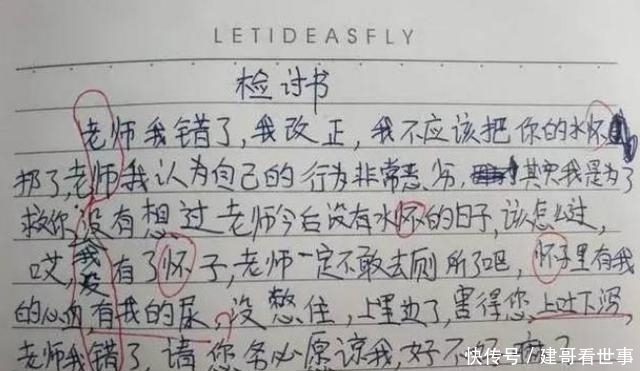 LETIDEASFLY
检讨书
老师我错了,我改正,我不应该把你的水怀
了,老师我认为自己的行为非常恶劣,其实我是为了
救你没有想过老师今后没有水怀的日子,该怎么过,
哎,我有了怀子,老师一定不敢去厕所了吧,怀子里有我
的心血,有我的尿,没憋住,上里边了,害得您上吐下泻,
老师我错了,请您务必原谅我,好不好
快传号/建哥看世事